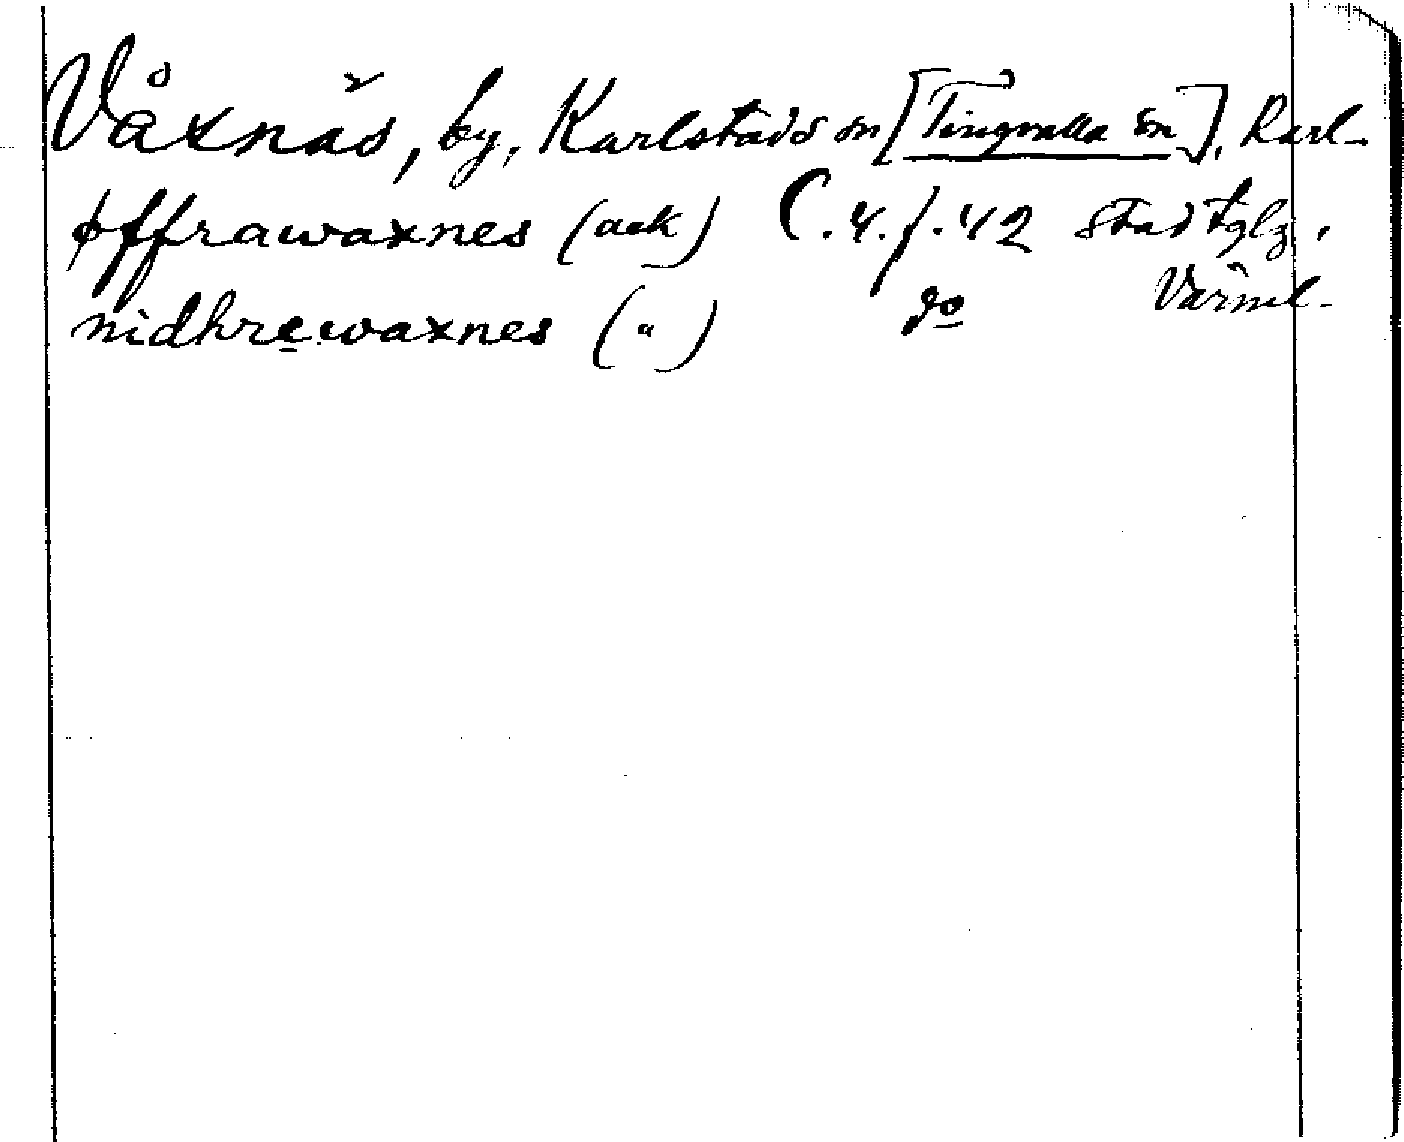 Våxnäs, by, Karlstads sn [Tingvalla sn], Karl-
øffrawaxnes (ack) C.4.f.42 stad tglg,
nidhrewaxnes (") do Värml-